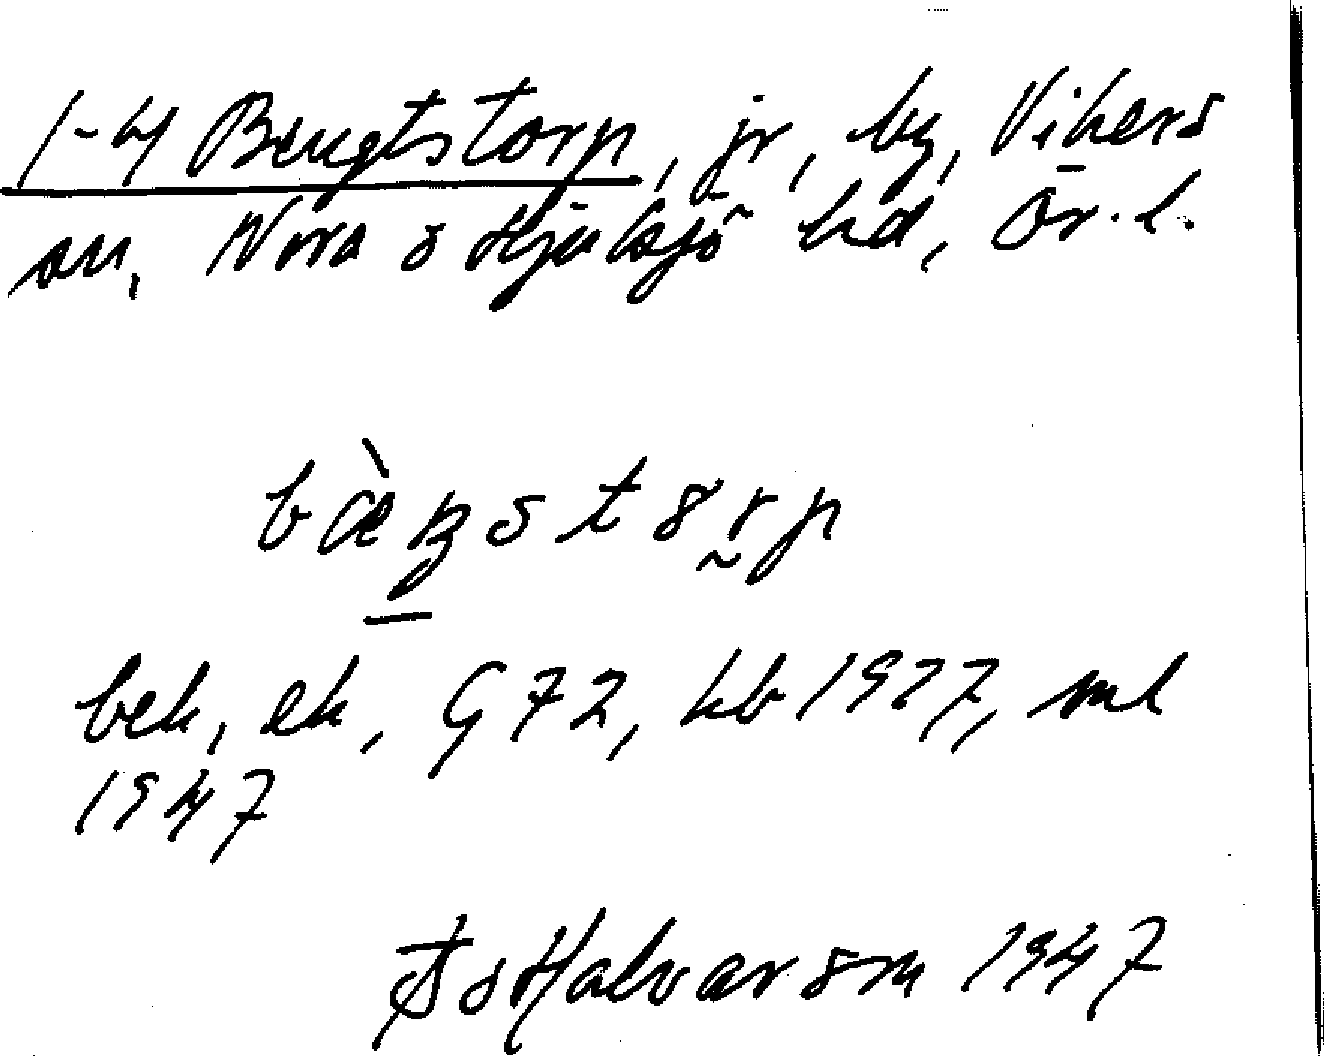 1-4 Bengtstorp, jr, by, Vikers
sn, Nora o Hjulsjö hd, Ör. l.
bæ̀ŋstorp
bek, ek, G 72, kb 1927, ml
1947
Halvarson 1947